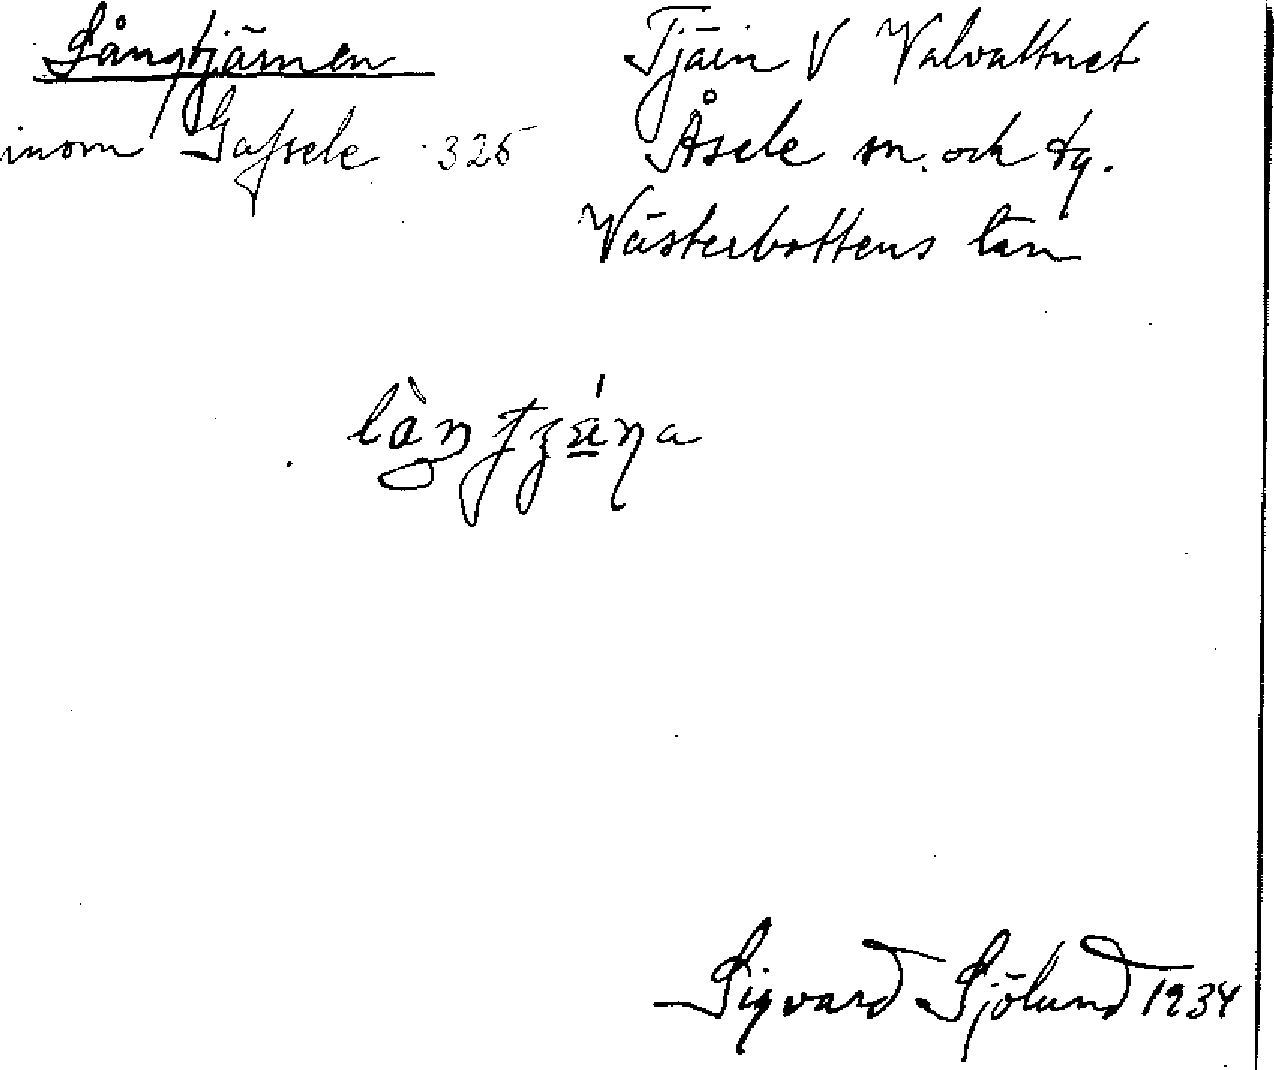 Långtjärnen
inom Gafsele 325
Tjärn V Valvattnet
Åsele sn. och tg.
Västerbottens län
Sigvard Sjölund 1934